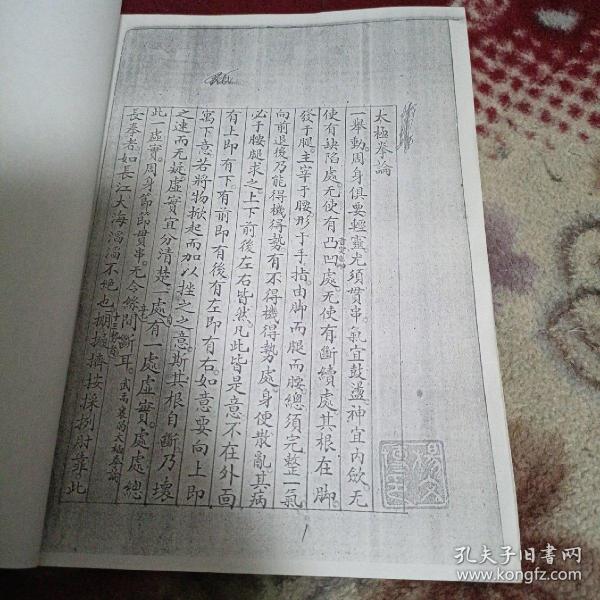 太極拳論
一舉動。周身俱要輕靈。尤須貫串。氣宜鼓盪。神宜內歛。无
使有缺陷處。无使有凸凹處。无使有斷續處。其根在脚。
發于腿。主宰于腰。形于手指。由脚而腿而腰。總須完整一氣
向前退後。乃能得機得勢。有不得機得勢處。身便散亂。其病
必于腰腿求之。上下前後左右皆然。凡此皆是意。不在外面
有上即有下。有前即有後。有左即有右。如意要向上。即
寓下意。若將物掀起而加以挫之之意。斯其根自斷。乃壞
之速而无疑。虛實宜分清楚。一處有一處虛實。處處總
此一虛實。周身節節貫串。无令絲間斷耳。武禹襄的太極拳論
長拳者。如長江大海滔滔不絶也。掤攦擠按採挒肘靠此
1
孔夫子旧書网
www.kongfz.com